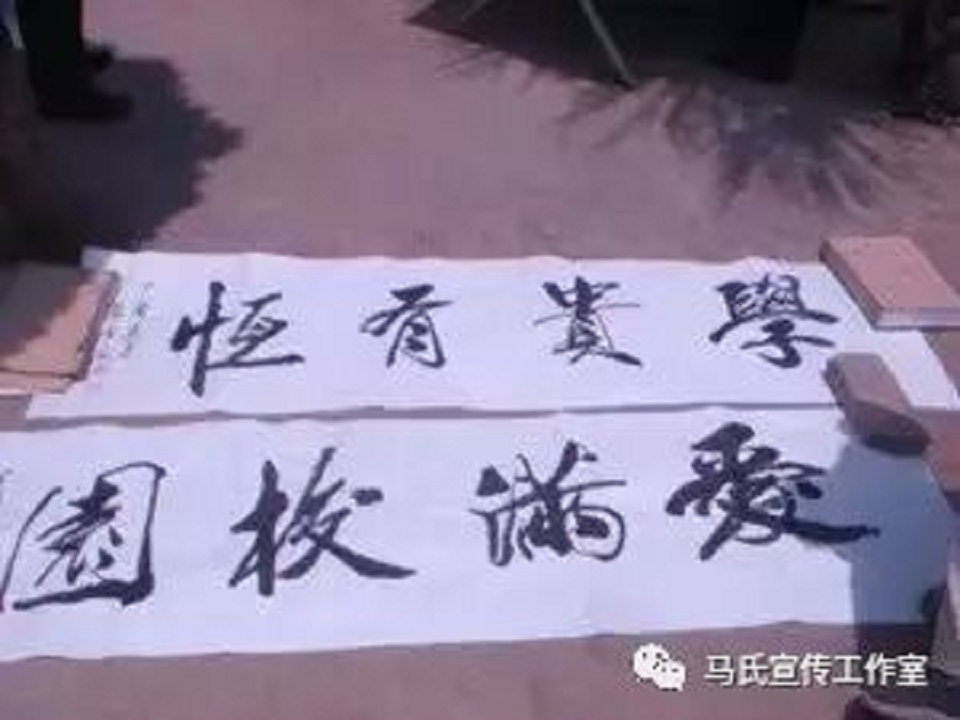 學貴有恆
愛滿校園
马氏宣传工作室